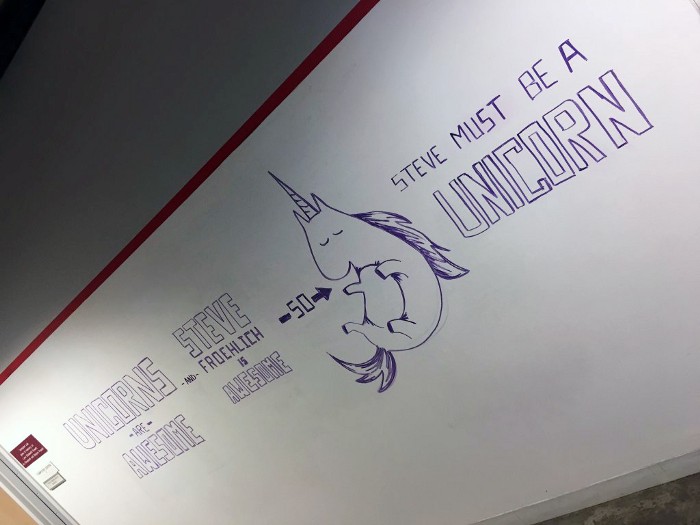 UNICORNS
-ARE-
AWESOME
-AND-
STEVE
FROEHLICH
IS
AWESOME
-SO→
STEVE MUST BE A
UNICORN